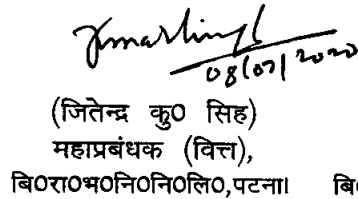 08/07/2020
(जितेन्द्र कु0 सिंह)
महाप्रबंधक (वित्त),
बि0रा0भ0नि0नि0लि0,पटना। बि0